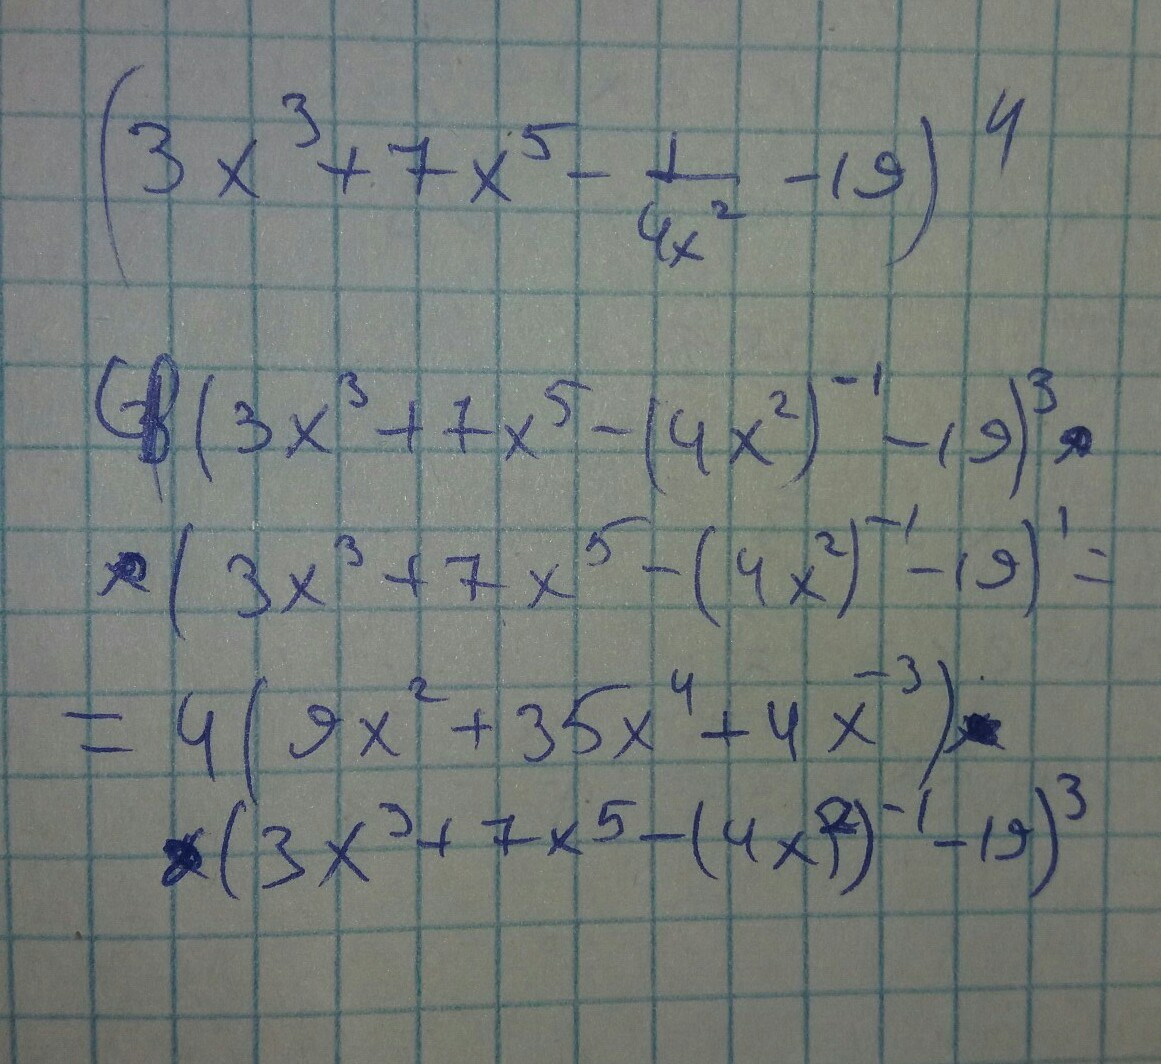 (3x³ + 7x⁵ - 1/4x² - 19)⁴
(3x³ + 7x⁵ - (4x²)⁻¹ - 19)³ •
• (3x³ + 7x⁵ - (4x²)⁻¹ - 19)' =
= 4(9x² + 35x⁴ + 4x⁻³) •
• (3x³ + 7x⁵ - (4x²)⁻¹ - 19)³